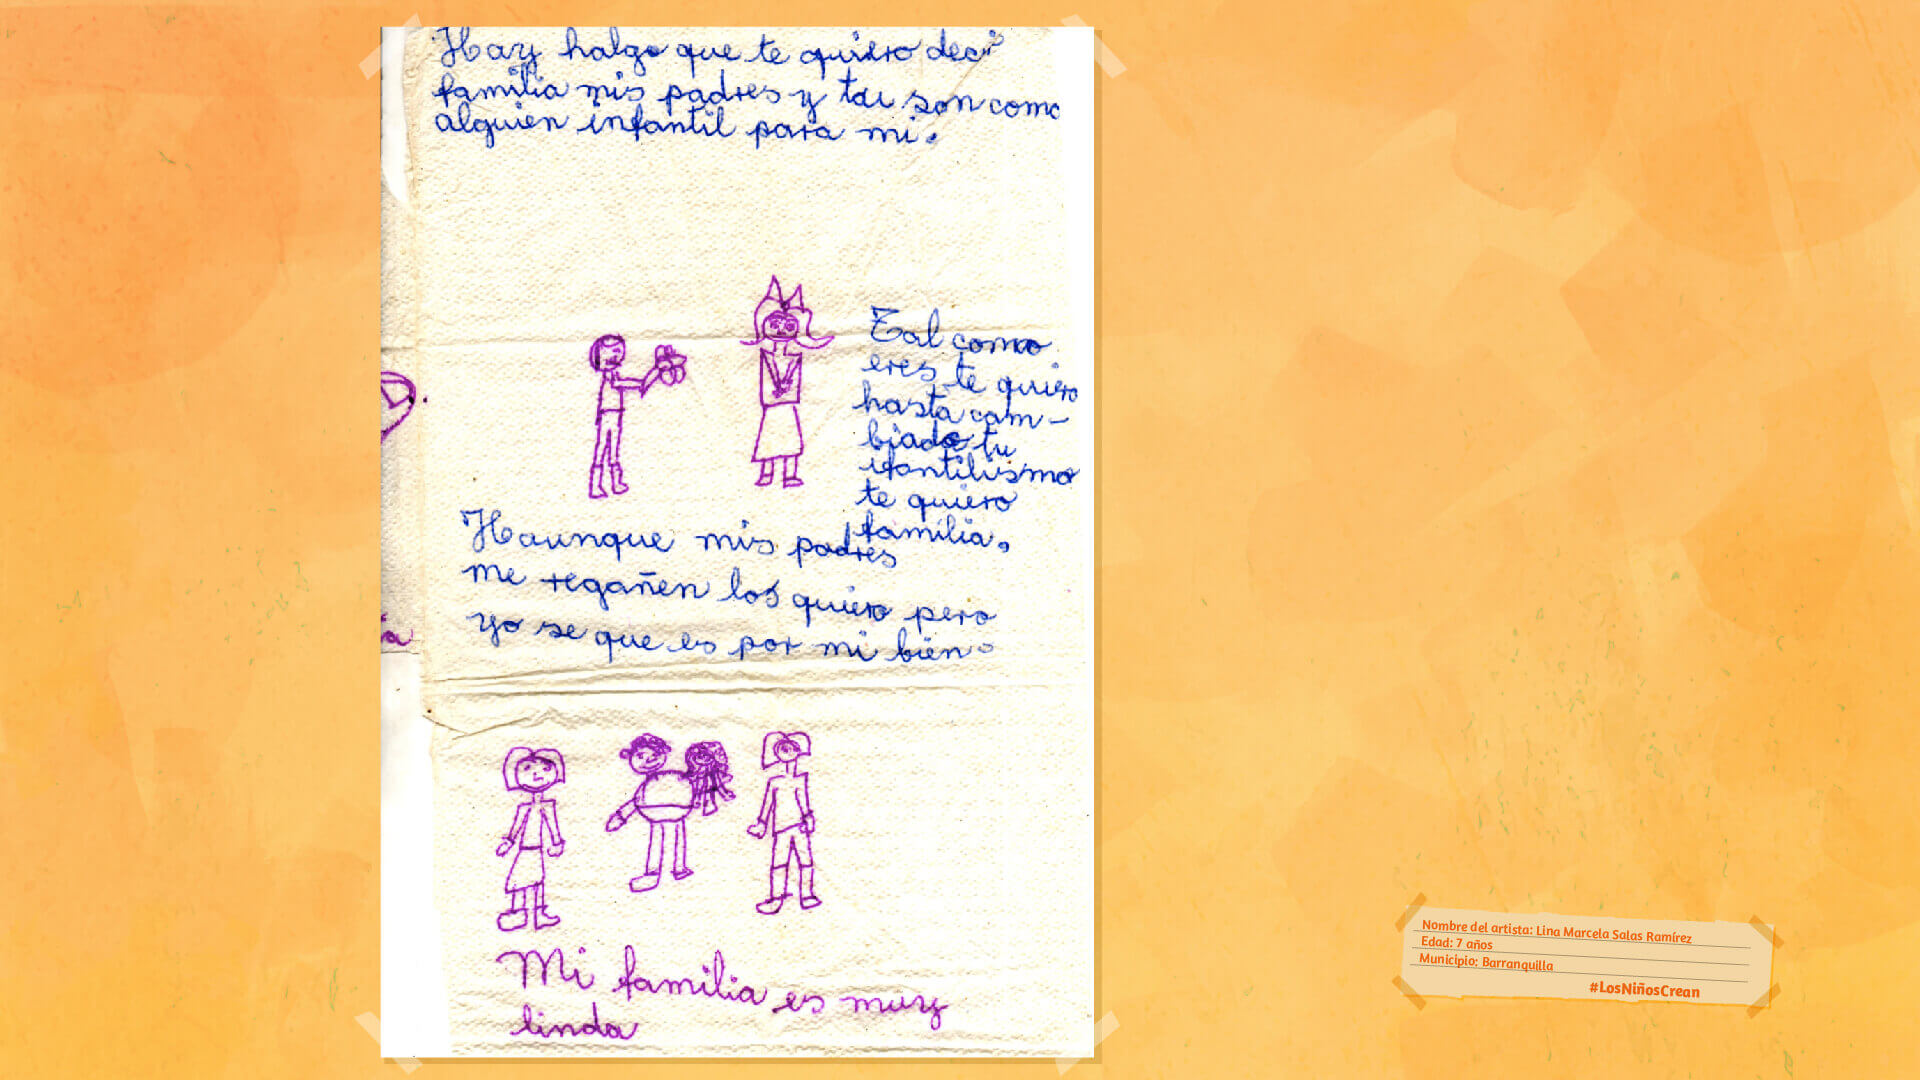 Hay halgo que te quiero deci
familia mis padres y tu son como
alguien infantil para mi.
Tal como
eres te quiero
hasta cam-
biado tu
ifantilismo
te quiero
familia.
Haunque mis padres
me regañen los quiero pero
yo se que es por mi bien.
Mi familia es muy
linda
Nombre del artista: Lina Marcela Salas Ramírez
Edad: 7 años
Municipio: Barranquilla
#LosNiñosCrean